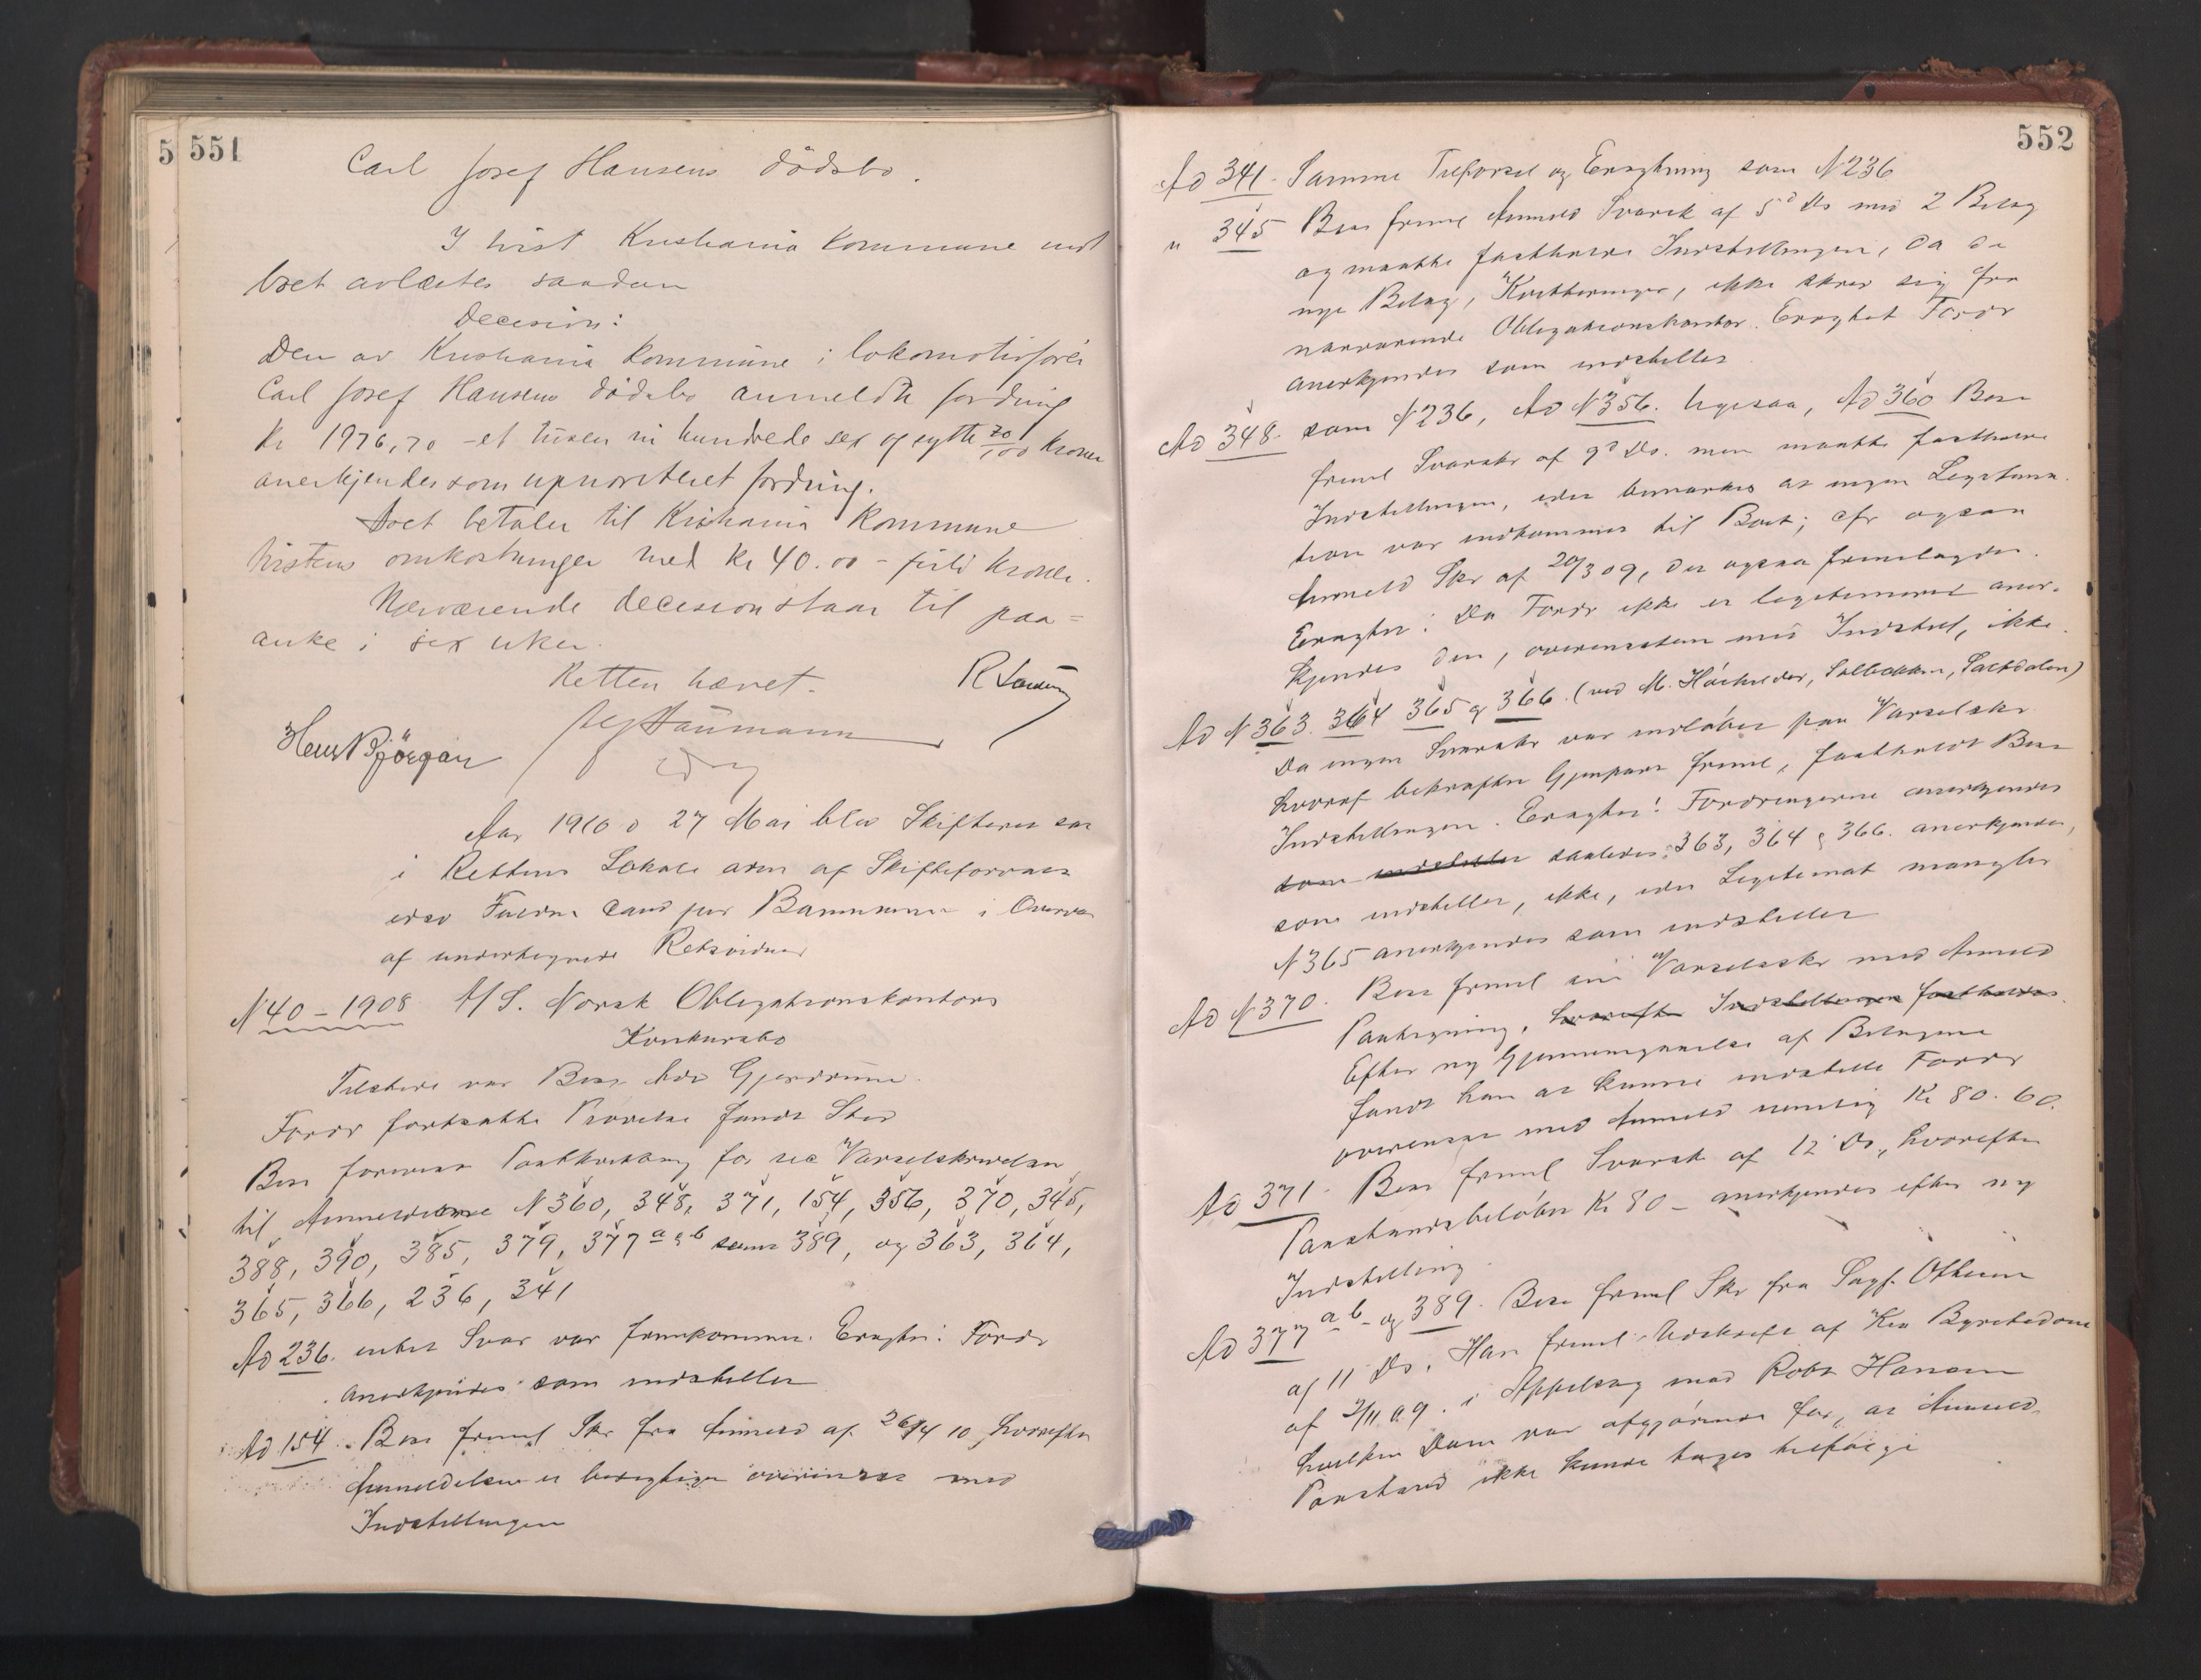 551
Carl Josef Hansens dödsbo.
I tvist Kristiania kommune mot
boet avlæstes saadan
Decision:
Den av Kristiania kommune i lokomotivförer
Carl Josef Hansens dödsbo anmeldte fordring
Kr 1976,70 – et tusen ni hundrede sex og sytti 70/100 kroner
anerkjendes som uprioritert fordring.
Boet betaler til Kristiania Kommune
tvistens omkostninger med kr 40.00 – firti kroner.
Nærværende decision staar til paa=
anke i sex uker.
Retten hævet.
Hens Bjórgan
Aar 1910 d 27 Mai blev Skifteret sat
i Rettens Lokale adm af Skifteforvalt
edsv Fuldm Cand jur i Overvær
af undertegnede Retsvidner
N 40 – 1908 A/S. Norsk Obligationskontors
Konkursbo
Tilstede var Best Adv Gjerdrum.
Fordr fortsatte Prövelse fandt Sted
Best foreviste Postkvittering for rec Varselskrivelser
til Anmelderne N 360, 348, 371, 154, 356, 370, 345,
388, 390, 385, 379, 377 a & b samt 389, og 363, 364,
365, 366, 236, 341
Ad 236. intet Svar var fremkommet. Eragtet: Fordr
anerkjendes som indstillet
Ad 154. Best freml Skr fra Anmeld af 26/4 10, hvorefter
Anmeldelsen er berigtiget overensst med
Indstillingen
552
Ad 341. Samme Tilförsel og Eragtning som N 236
" 345 Best freml Anmeld Svarsk af 5d Ds med 2 Bilag
og maatte fastholde Indstillingen, da de
nye Bilag, Kvitteringer, ikke skrev sig fra
nærværende Obligationskontor. Eragtet Fordr
anerkjendes som indstillet
Ad 348. som N 236, Ad N 356. ligesaa, Ad 360 Best
freml Svarskr af 9d Ds. men maatte fastholde
Indstillingen, idet bemærkes at ingen Legitima-
tion var indkommet til Boet; cfr ogsaa
Anmeld Skr af 20/3 09, der ogsaa fremlagdes.
Eragtet: Da Fordr ikke er legitimeret aner-
kjendes den, overensstem med Indstill, ikke.
Ad N 363. 364 365 & 366. (ved M. Solbakken, Saltdalen)
Da ingen Svarskr var indlöbet paa Varselskr
hvoraf bekræftet Gjenpart freml, fastholdt Best
Indstillingen. Eragtet: Fordringerne anerkjendes
som indstillet saaledes: 363, 364 & 366. anerkjendes,
som indstillet, ikke, idet Legitimat mangler
N 365 anerkjendes som indstillet
Ad N 370. Best freml sin Varselsskr med Anmeld
Paategning, hvorefter Indstillingen fastholdes.
Efter ny Gjennemgaaelse af Bilagene
fandt han at kunne indstille Fordr
overensst med Anmeld nemlig Kr 80.60.
Ad 371. Best freml Svarsk af 12 Ds, hvorefter
Paastandsbelöbet Kr 80 – anerkjendes efter ny
Indstilling.
Ad 377 a b – og 389. Best freml Skr fra Sagf.
af 11 Ds. Han freml Udskrift af Kra Byretsdom
af 2/11 09. i Appelsag mod Robt Hansen
hvilken Dom var afgjörende for, at Anmeld
Paastand ikke kunde tages tilfölge